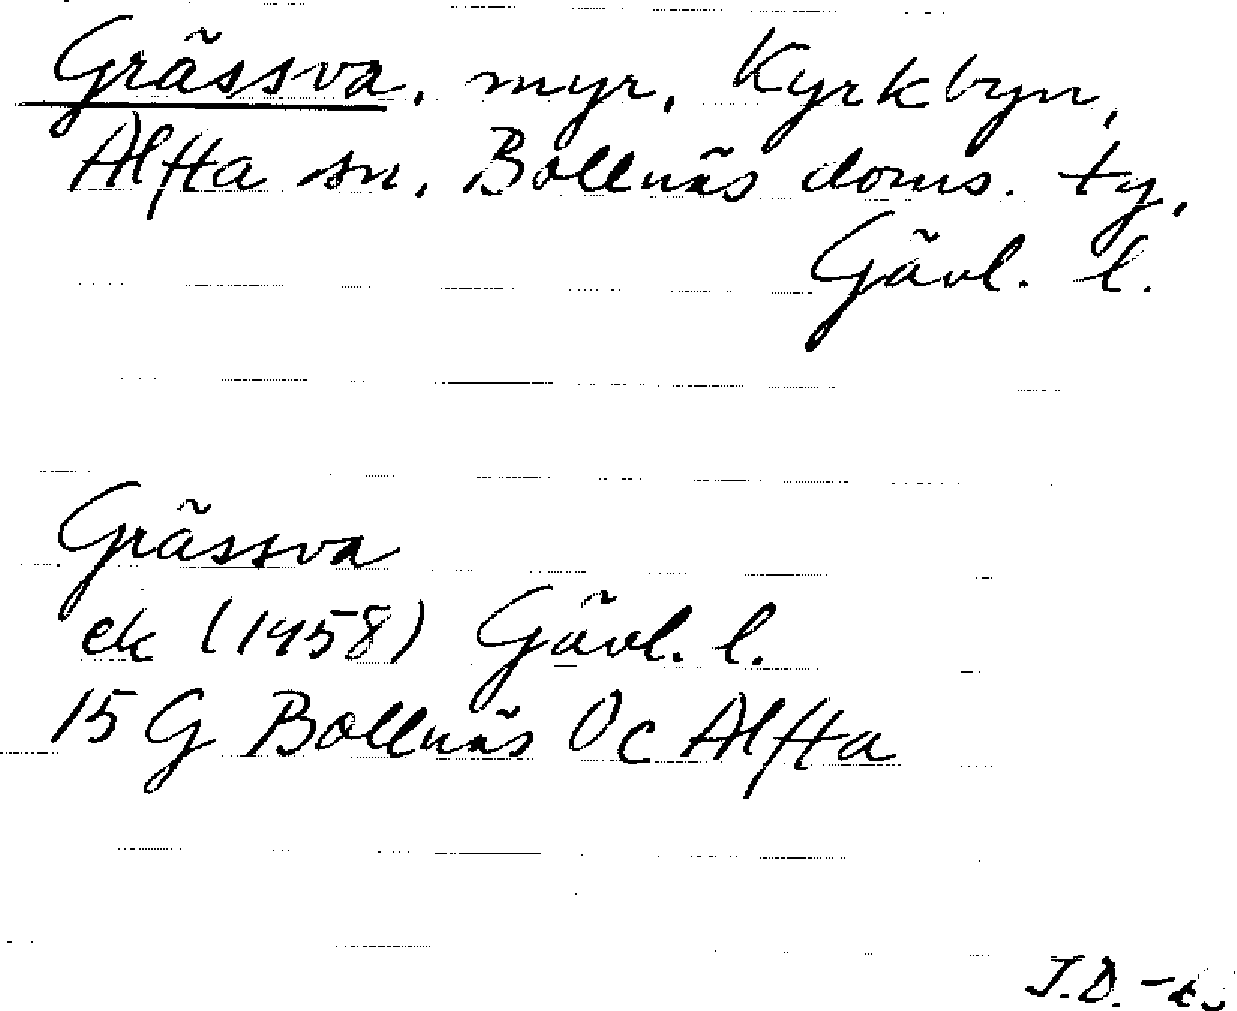 Grässva, myr, Kyrkbyn,
Alfta sn, Bollnäs doms. ty,
Gävl. l.
Grässva
ek (1958) Gävl. l.
15 G Bollnäs 0c Alfta
J.D.